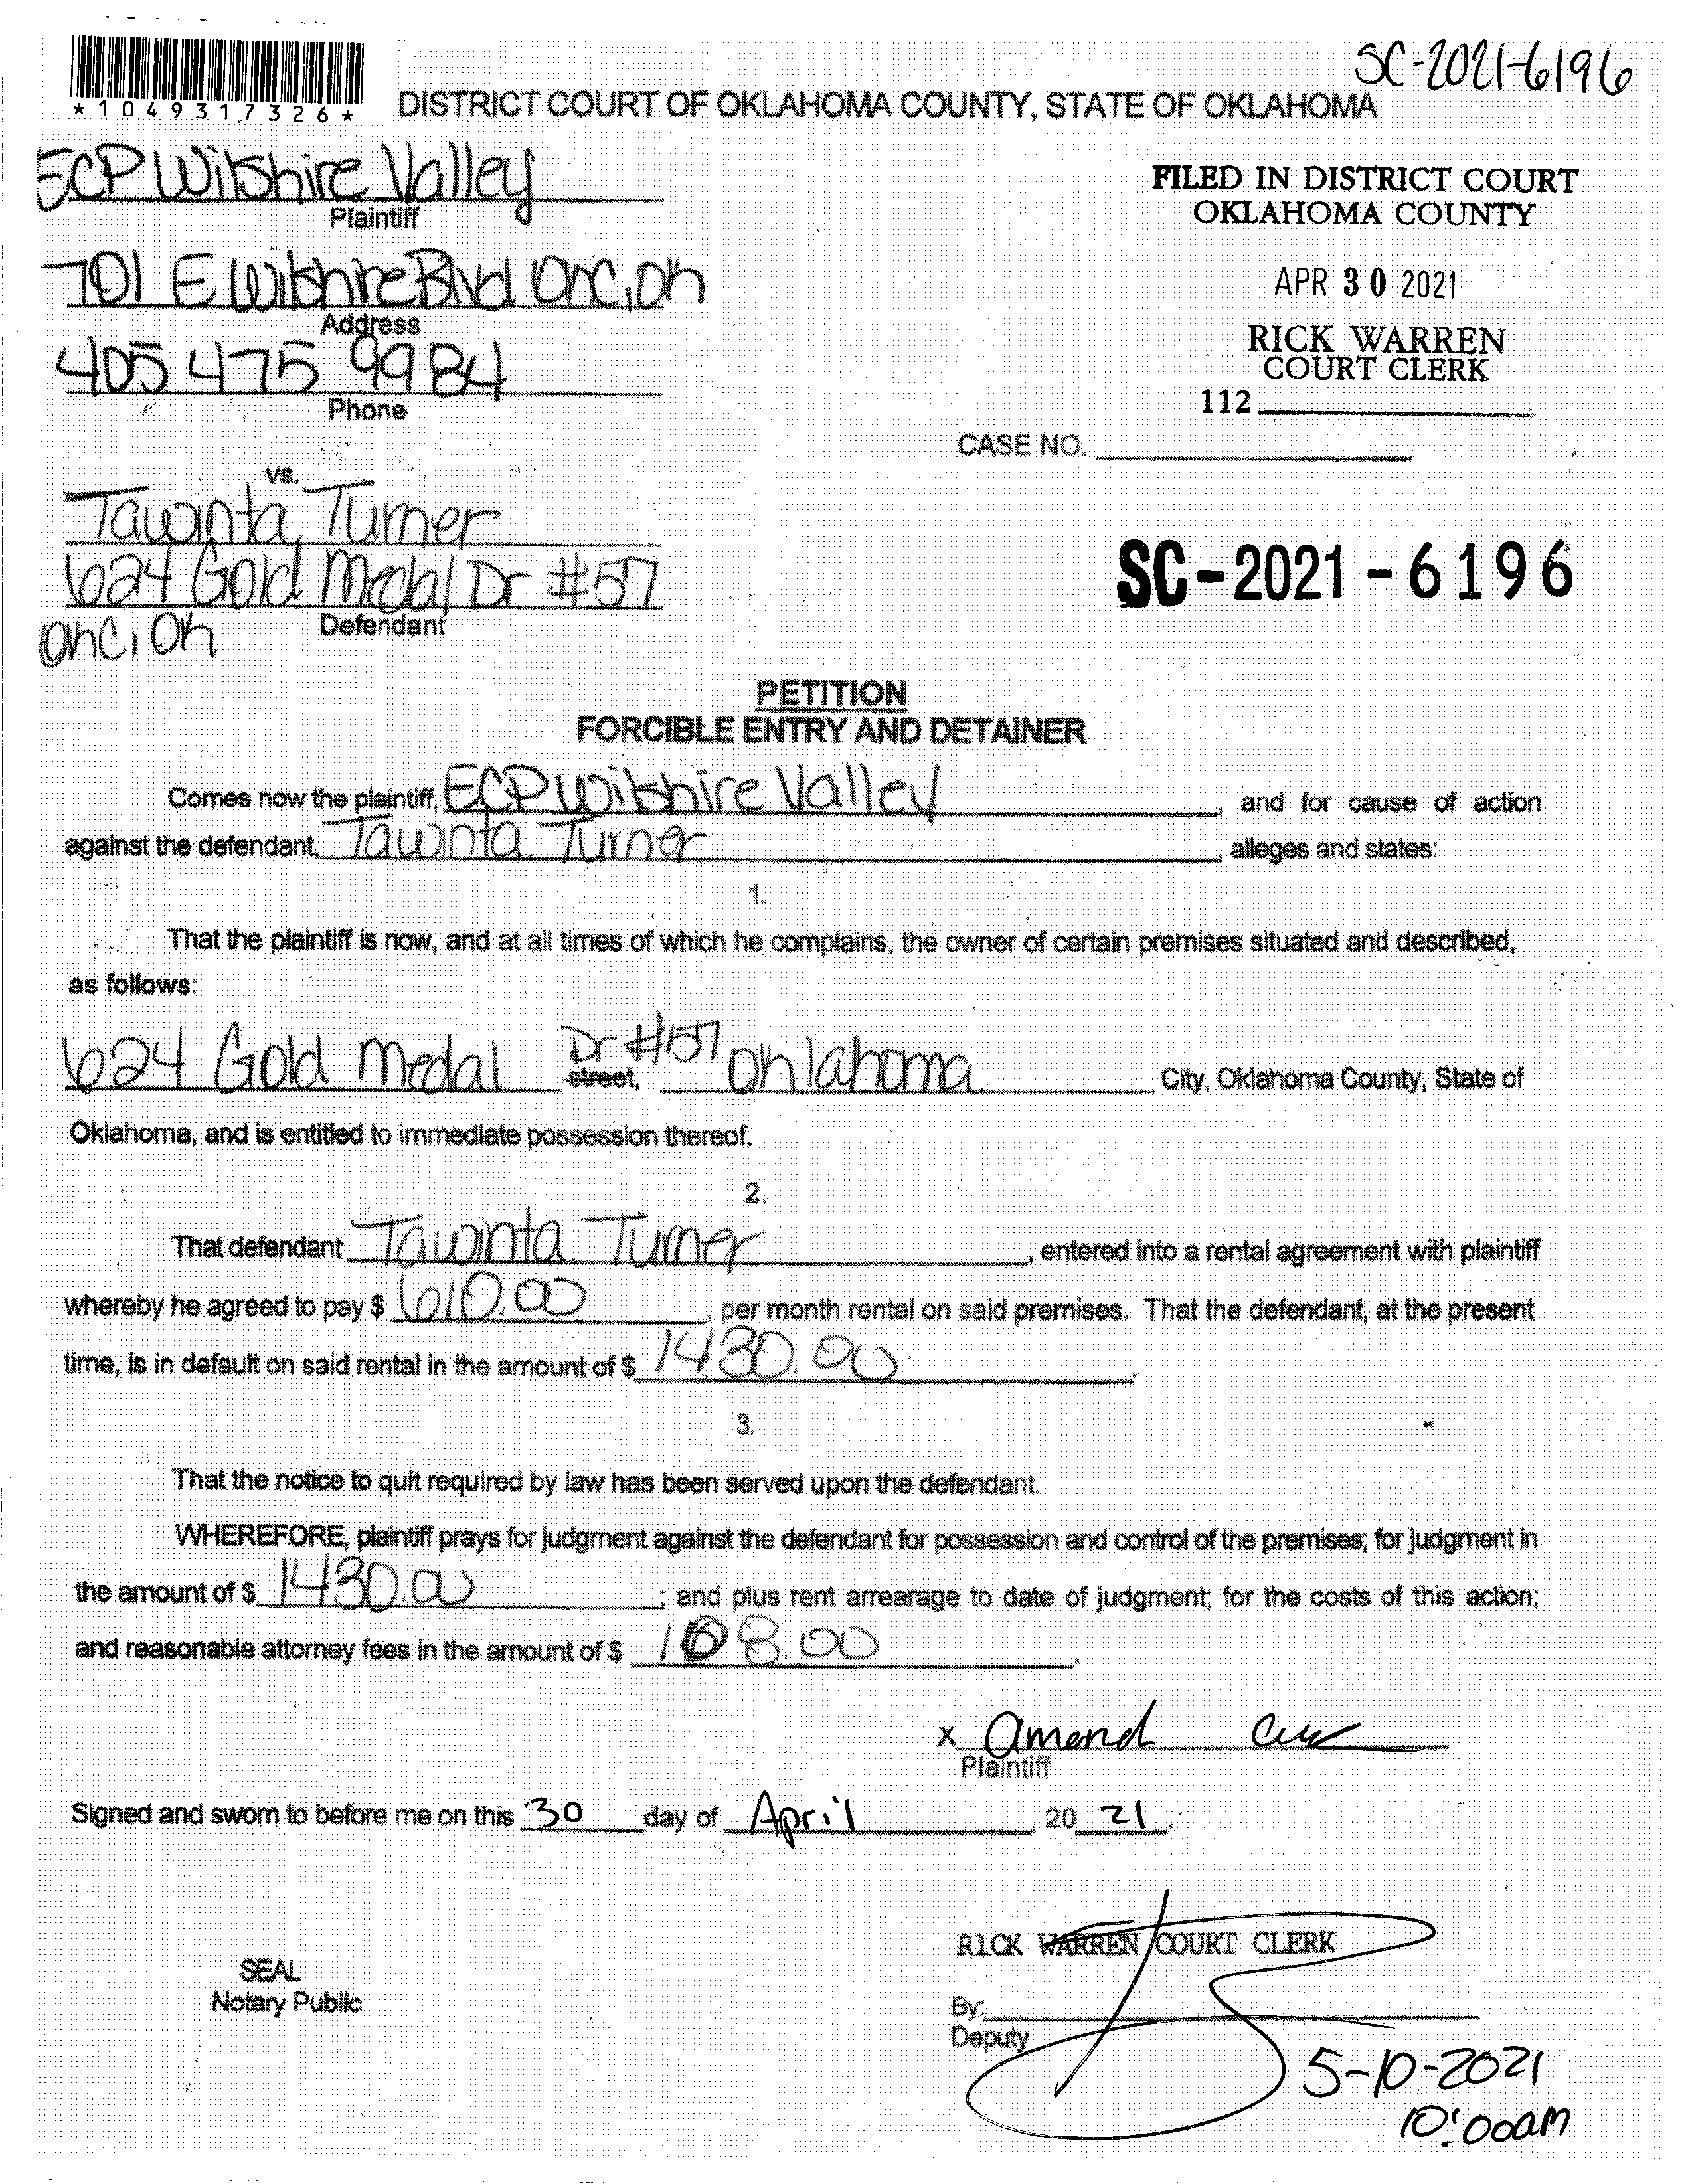 SC-2021-6196
*1049317326*
DISTRICT COURT OF OKLAHOMA COUNTY, STATE OF OKLAHOMA
ECP Wilshire Valley
Plaintiff
FILED IN DISTRICT COURT
OKLAHOMA COUNTY
701 E Wilshire Blvd OKC, OK
Address
APR 30 2021
405 475 9984
Phone
RICK WARREN
COURT CLERK
112
CASE NO.
vs.
Tawinta Turner
624 Gold Medal Dr #57
Defendant
OKC, OK
SC-2021-6196
PETITION
FORCIBLE ENTRY AND DETAINER
Comes now the plaintiff, ECP Wilshire Valley, and for cause of action
against the defendant, Tawinta Turner, alleges and states:
1.
That the plaintiff is now, and at all times of which he complains, the owner of certain premises situated and described,
as follows:
624 Gold Medal Dr #57 street, Oklahoma City, Oklahoma County, State of
Oklahoma, and is entitled to immediate possession thereof.
2.
That defendant Tawinta Turner, entered into a rental agreement with plaintiff
whereby he agreed to pay $ 610.00, per month rental on said premises. That the defendant, at the present
time, is in default on said rental in the amount of $ 1430.00.
3.
That the notice to quit required by law has been served upon the defendant.
WHEREFORE, plaintiff prays for judgment against the defendant for possession and control of the premises; for judgment in
the amount of $ 1430.00; and plus rent arrearage to date of judgment; for the costs of this action;
and reasonable attorney fees in the amount of $ .
X
Plaintiff
Signed and sworn to before me on this 30 day of April, 20 21.
RICK WARREN COURT CLERK
SEAL
Notary Public
By:
Deputy
5-10-2021
10:00am